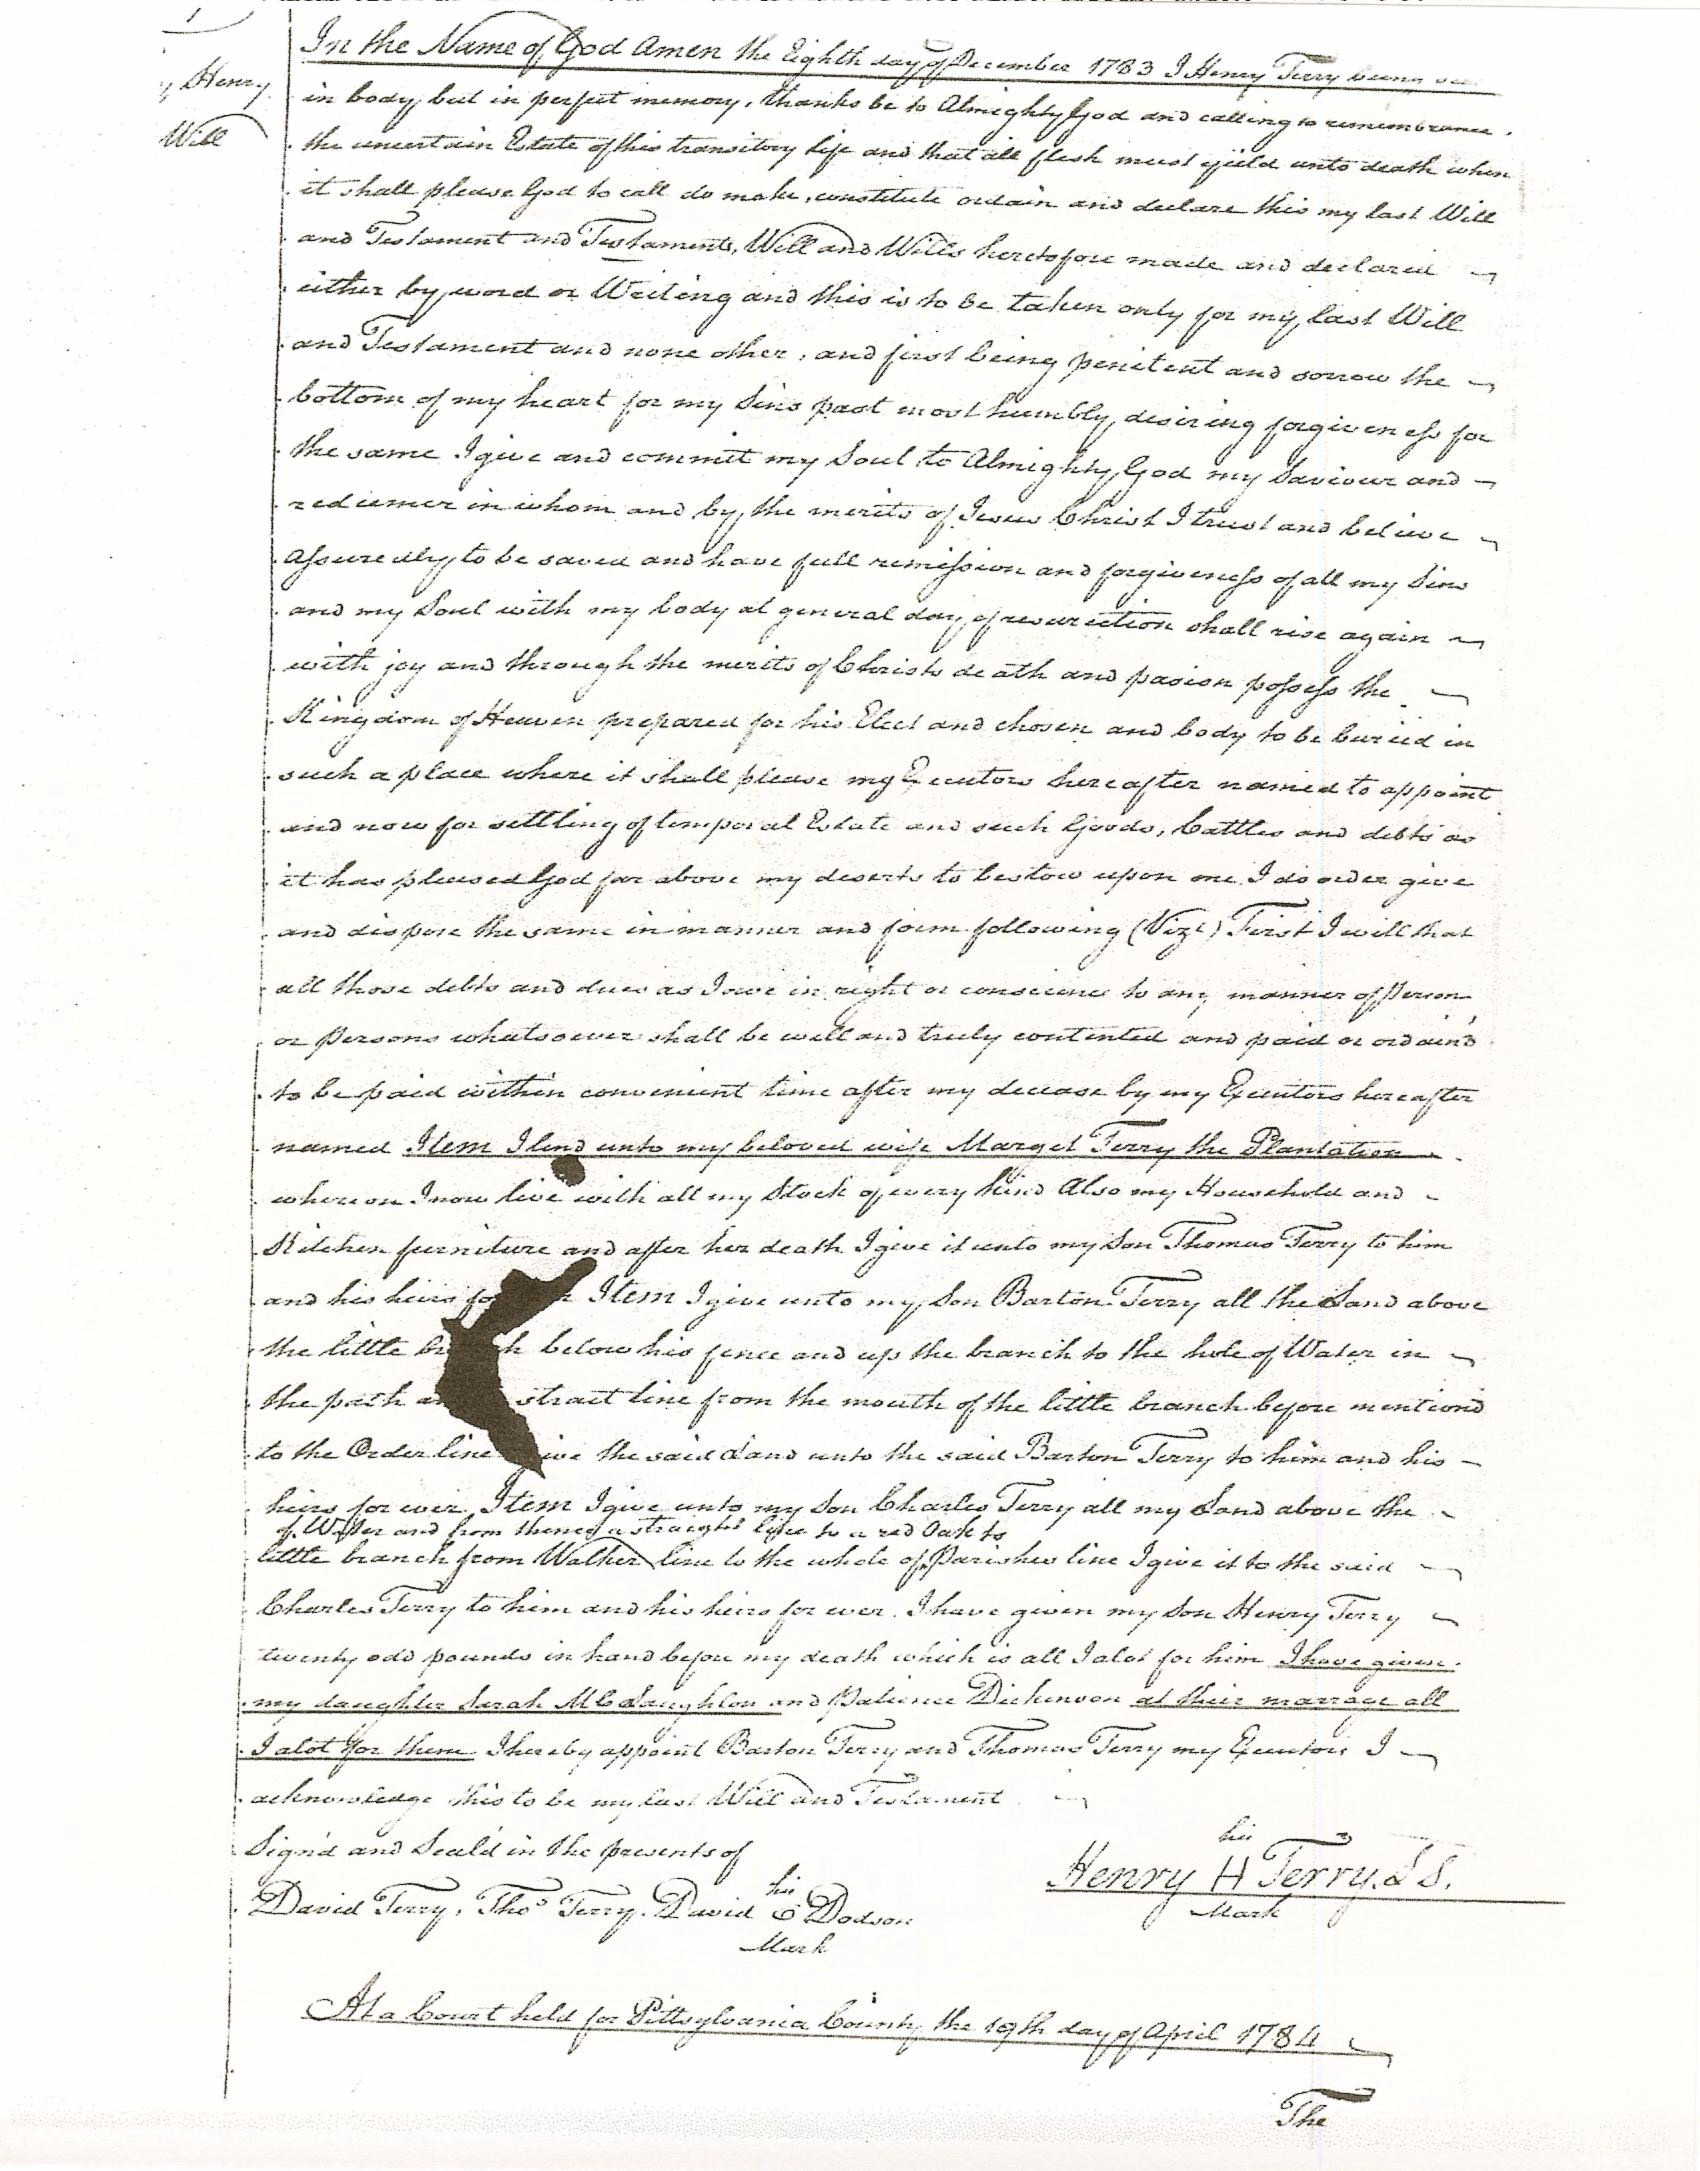 Henry
Will
In the Name of God Amen the Eighth day of December 1783 I Henry Terry being
in body, but in perfect memory, thanks be to Almighty God and calling to remembrance
the uncertain Estate of this transitory life and that all flesh must yield unto death when
it shall please God to call do make, constitute ordain and declare this my last Will
and Testament and Testaments, Will and Wills heretofore made and declared
either by word or Writing and this is to be taken only for my last Will
and Testament and none other, and first being penitent and sorrow the
bottom of my heart for my Sins past most humbly desiring forgiveness for
the same I give and commit my Soul to Almighty God my Saviour and
redeemer in whom and by the merits of Jesus Christ I trust and believe
assuredly to be saved and have full remission and forgiveness of all my Sins
and my Soul with my body at general day of resurrection shall rise again
with joy and through the merits of Christs death and pasion possess the
Kingdom of Heaven prepared for his Elect and chosen and body to be buried in
such a place where it shall please my Executors hereafter named to appoint
and now for settling of temporal Estate and such Goods, Cattles and debts as
it has pleased God far above my deserts to bestow upon me I do order give
and dispose the same in manner and form following (Vizt) First I will that
all those debts and dues as I owe in right or conscience to any manner of Person
or Persons whatsoever shall be well and truly contented and paid or ordain'd
to be paid within convenient time after my decease by my Executors hereafter
named Item I lend unto my beloved wife Marget Terry the Plantation
whereon I now live with all my Stock of every kind Also my Household and
Kitchen furniture and after her death I give it unto my Son Thomas Terry to him
and his heirs Item I give unto my Son Barton Terry all the Land above
the little below his fence and up the branch to the hole of Water in
the path strait line from the mouth of the little branch before mention'd
to the Order line the said Land unto the said Barton Terry to him and his
heirs for ever. Item I give unto my Son Charles Terry all my Land above the
of Water and from thence a straight line to a red Oak to
little branch from Walker line to the whole of Parishes line I give it to the said
Charles Terry to him and his heirs for ever. I have given my Son Henry Terry
twenty odd pounds in hand before my death which is all I alot for him I have given
my daughter Sarah McLaughlon and Patience Dickenson at their marrage all
I alot for them I hereby appoint Barton Terry and Thomas Terry my Executors I
acknowledge this to be my last Will and Testament
Sign'd and Seal'd in the presents of
his
Henry H Terry. L S.
Mark
his
David Terry, Thos Terry. David Dodson
Mark
At a Court held for Pittsylvania County the 19th day of April 1784
The